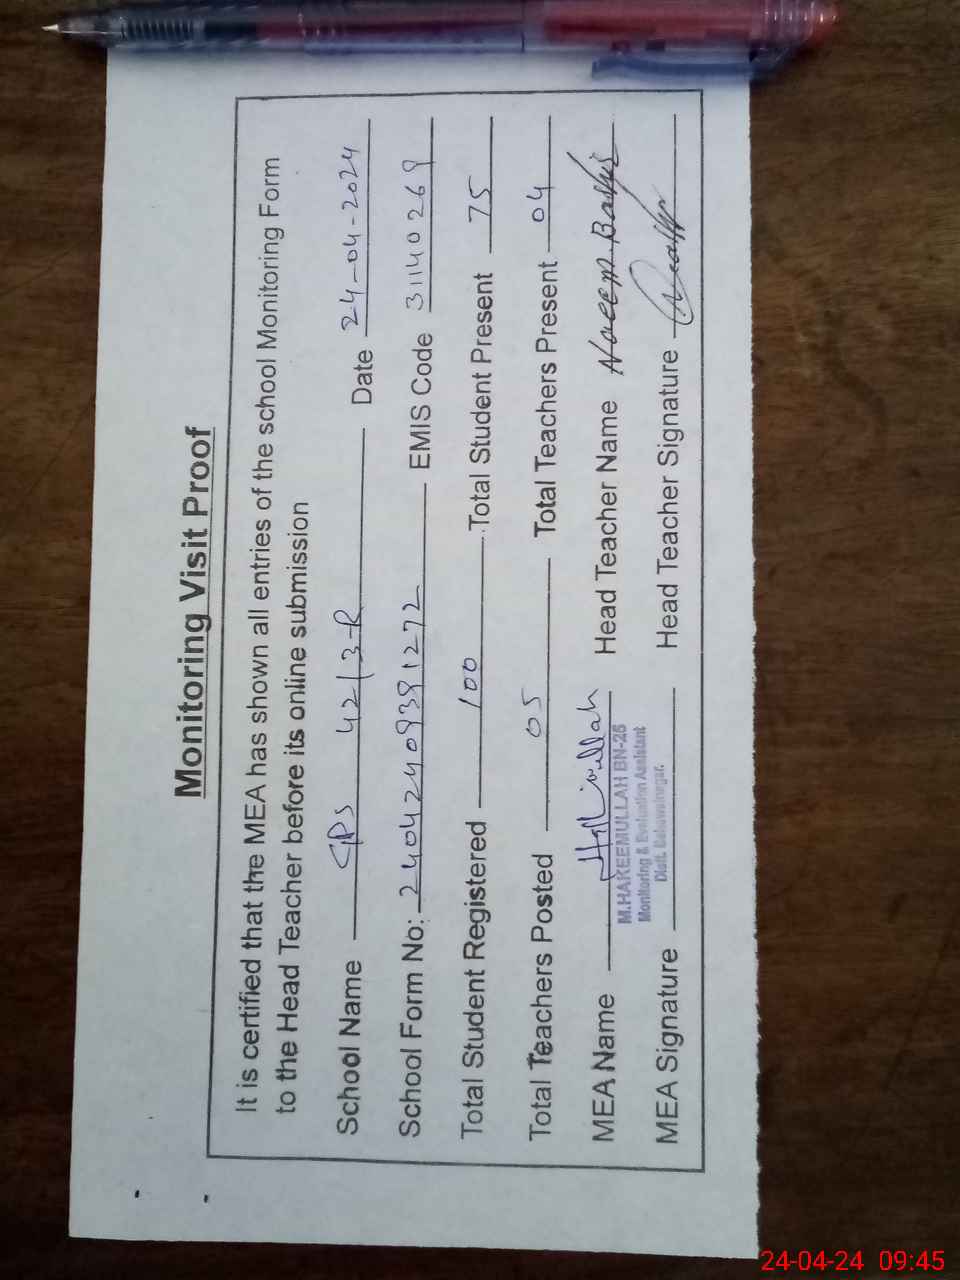 Monitoring Visit Proof
It is certified that the MEA has shown all entries of the school Monitoring Form
to the Head Teacher before its online submission
School Name GPS 42/3-R Date 24-04-2024
School Form No: 24042409391272 EMIS Code 31140269
Total Student Registered 100 Total Student Present 75
Total Teachers Posted 05 Total Teachers Present 04
MEA Name Head Teacher Name Naeem Bashir
M.HAKEEMULLAH BN-25
Monitoring & Evaluation Assistant
Distt. Bahawalnagar.
MEA Signature Head Teacher Signature
24-04-24 09:45